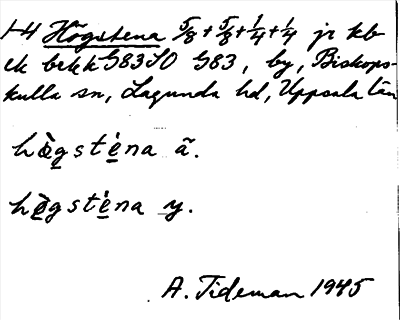 1-4 Högstena 5/8+5/8+1/4+1/4 jr kb
ek bekk G83SO G83, by, Biskops-
kulla sn, Lagunda hd, Uppsala län
hø̀gsté̗na ã.
hø̀gsté̗na y.
A. Tideman 1945